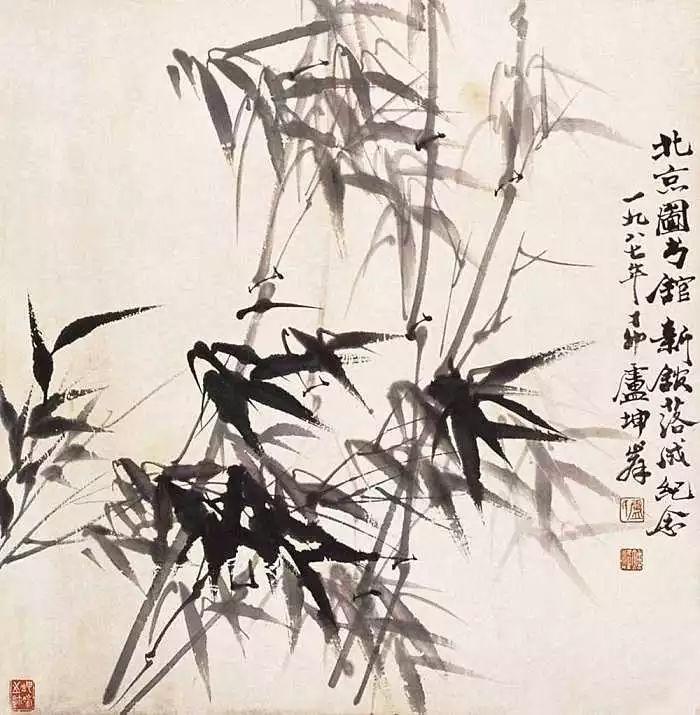 北京圖书館新館落成紀念
一九八七年丁卯盧坤峰